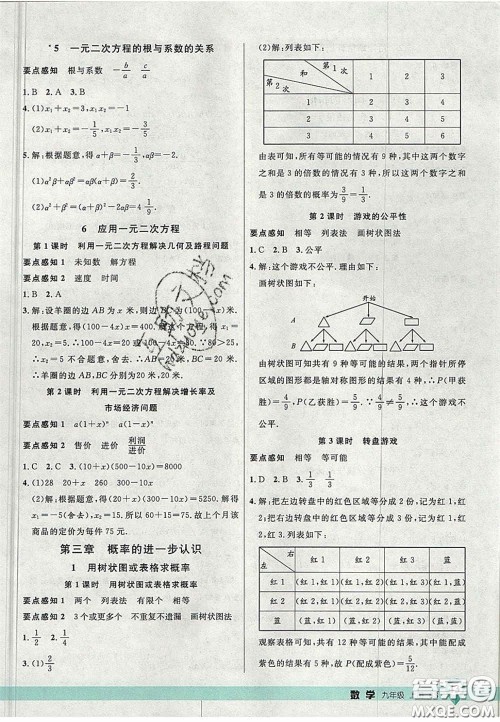 *5 一元二次方程的根与系数的关系
要点感知 根与系数 -b/a c/a
1. B 2. A 3. C
4. (1)x₁+x₂=3,x₁x₂=-1
(2)x₁+x₂=-2/3,x₁x₂=-5/3
5. 解:根据题意,得α+β=-1/2,αβ=-2.
(1)α²β+αβ²=αβ(α+β)=-2×(-1/2)=1.
(2)α²+β²=(α+β)²-2αβ=(-1/2)²-2×(-2)=17/4.
6 应用一元二次方程
第1课时 利用一元二次方程解决几何及路程问题
要点感知1 未知数 解方程
要点感知2 速度 时间
1. C 2. B
3. 解:设羊圈的边AB为x米,则边BC为(100-4x)米.
根据题意,得(100-4x)x=400.解得x₁=
20,x₂=5.则100-4x=20或100-4x=80.∵80>25,
∴x₂=5不合题意,舍去.∴AB=20米,BC=20米.
∴羊圈的边AB,BC分别为20米,20米.
第2课时 利用一元二次方程解决增长率及
市场经济问题
要点感知1 a(1+x)ⁿ a(1-x)ⁿ
要点感知2 售价 进价 利润/进价
1. C 2. C 3. (20+x)(300-10x)=6125
4. (1)28 20+x 300-10x
(2)解:根据题意,得(20+x)(300-10x)=6000.解得
x₁=-5(舍去),x₂=15.故60+x=75.故这个月商
家该商品的定价为每件75元.
第三章 概率的进一步认识
1 用树状图或表格求概率
第1课时 用树状图或表格求概率
要点感知1 两个 列表法 有限个 相等
要点感知2 3个或更多个 不重复不遗漏 画树状图法
1. 1/2 2. 1/4
3. (1)1/3
(2)解:列表如下:
第1次 和 第2次 1 2 3
1 2 3 4
2 3 4 5
3 4 5 6
由表可知,所有等可能的情况有9种,其中这两个数字
之和是3的倍数的情况有3种,则这两个数字之和
是3的倍数的概率为3/9=1/3.
第2课时 游戏的公平性
要点感知 相等 列表法 画树状图法
1. C 2. B 3. 公平
4. 解:这个游戏不公平.理由如下:
画树状图如下:
开始
由树状图可知共有9种等可能的结果,两个指针所停
区域的图形都为轴对称图形的结果有4种,∴P(甲获
胜)=4/9,P(乙获胜)=5/9.∵4/9<5/9,∴这个游戏不公平.
第3课时 转盘游戏
要点感知 相等 等可能
1. A
2. 解:把左边转盘中的红色区域等分成2份,记为红1,
红2,把右边转盘中的红色区域等分成3份,记为红1,
红2,红3.列表如下:
左 右 红1 红2 红3 蓝
红1 (红1,红1) (红1,红2) (红1,红3) (红1,蓝)
红2 (红2,红1) (红2,红2) (红2,红3) (红2,蓝)
蓝 (蓝,红1) (蓝,红2) (蓝,红3) (蓝,蓝)
观察表格可知,共有12种等可能的结果,其中能配成
紫色的结果有5种,故P(配成紫色)=5/12.
数学 九年级 上
答案圈
MXQE.COM